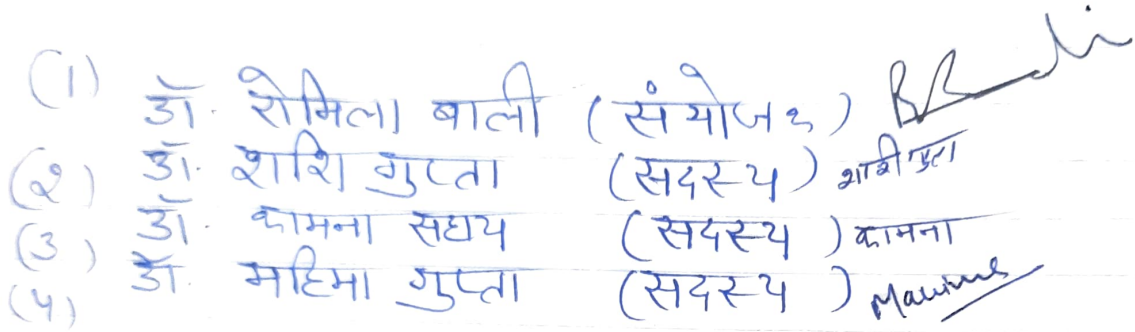 (1) डॉ. रोमिला बाली (संयोजक)
(२) डॉ. शशि गुप्ता (सदस्य) शशि गुप्ता
(3) डॉ. कामना सहाय (सदस्य) कामना
(4) डॉ. महिमा गुप्ता (सदस्य)